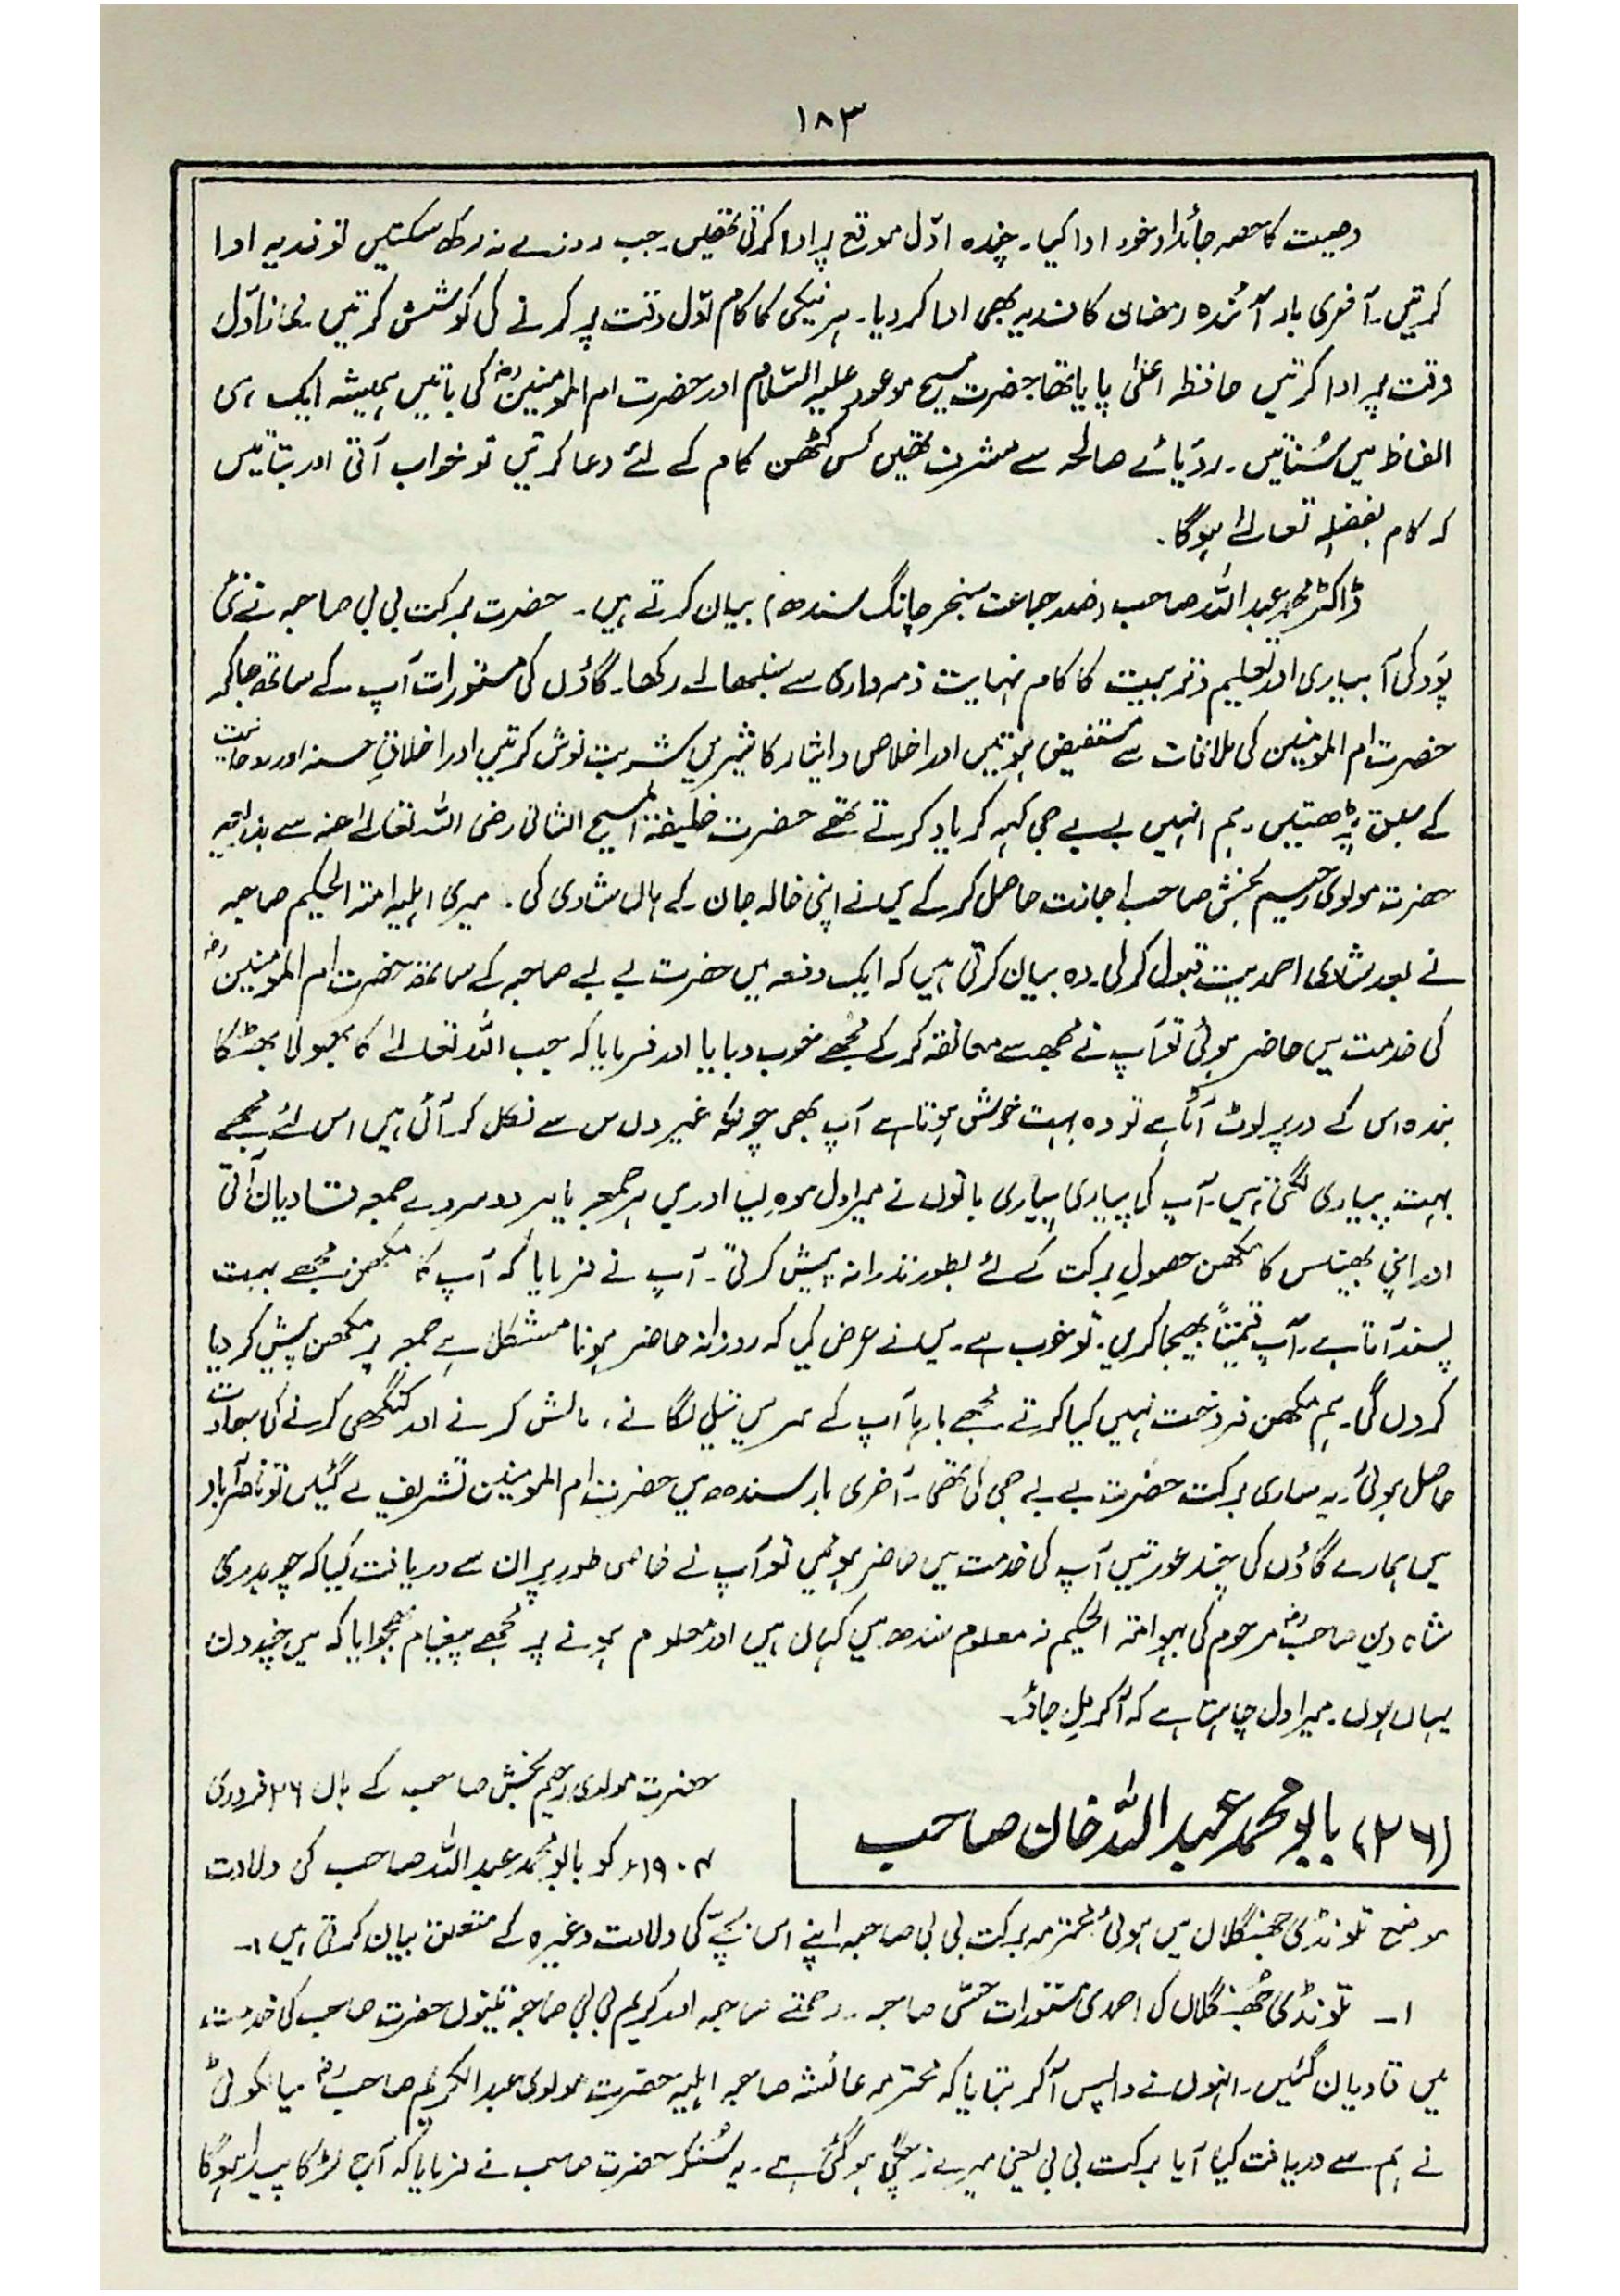 ۱۸۳
وصیت کا حصہ جائداد خود ادا کیا۔ چندہ اوّل موقع پر ادا کرتی تھیں۔ جب روزے نہ رکھ سکتیں تو فدیہ ادا
کرتیں۔ آخری بار آئندہ رمضان کا فدیہ بھی ادا کر دیا۔ ہر نیکی کا کام اوّل وقت پر کرنے کی کوشش کرتیں۔ نماز اوّل
وقت پر ادا کرتیں حافظہ اعلیٰ پایا تھا۔ حضرت مسیح موعود علیہ السّلام اور حضرت ام المومنینؓ کی باتیں ہمیشہ ایک ہی
الفاظ میں سُناتیں۔ رؤیائے صالحہ سے مشرف تھیں کسی کٹھن کام کے لئے دعا کرتیں تو خواب آتی اور بتاتیں
کہ کام بفضلہٖ تعالےٰ ہوگا۔
ڈاکٹر محمد عبداللہ صاحب (صدر جماعت سنجر چانگ سندھ) بیان کرتے ہیں۔ حضرت برکت بی بی صاحبہ نے نئی
پَود کی آبیاری اور تعلیم و تربیت کا کام نہایت ذمہ داری سے سنبھالے رکھا۔ گاؤں کی مستورات آپ کے ساتھ جا کر
حضرت ام المومنین کی ملاقات سے مستفیض ہوتیں اور اخلاص و ایثار کا شیریں شربت نوش کرتیں اور اخلاقِ حسنہ اور روحانیت
کے سبق پڑھتیں۔ ہم انہیں بے بے جی کہہ کر یاد کرتے تھے حضرت خلیفۃ المسیح الثانی رضی اللہ تعالےٰ عنہ سے بذریعہ
حضرت مولوی رحیم بخش صاحب اجازت حاصل کر کے میں نے اپنی خالہ جان کے ہاں شادی کی۔ میری اہلیہ امتہ الحکیم صاحبہ
نے بعد شادی احمدیت قبول کر لی۔ وہ بیان کرتی ہیں کہ ایک دفعہ میں حضرت بے بے صاحبہ کے ساتھ حضرت ام المومنینؓ
کی خدمت میں حاضر ہوئی تو آپ نے مجھ سے معانقہ کر کے مجھے خوب دبایا اور فرمایا کہ جب اللہ تعالےٰ کا بھولا بھٹکا
بندہ اس کے در پر لوٹ آتا ہے تو وہ بہت خوش ہوتا ہے آپ بھی چونکہ غیروں میں سے نکل کر آئی ہیں اس لئے مجھے
بہت پیاری لگتی ہیں۔ آپ کی پیاری پیاری باتوں نے میرا دل موہ لیا اور میں ہر جمعہ یا ہر دوسرے جمعہ قادیان آتی
اور اپنی بھینس کا مکھن حصولِ برکت کے لئے بطور نذرانہ پیش کرتی۔ آپ نے فرمایا کہ آپ کا مکھن مجھے بہت
پسند آتا ہے۔ آپ قیمتاً بھیجا کریں۔ تو خوب ہے۔ میں نے عرض کی کہ روزانہ حاضر ہونا مشکل ہے جمعہ پر مکھن پیش کر دیا
کروں گی۔ ہم مکھن فروخت نہیں کیا کرتے مجھے بارہا آپ کے سر میں تیل لگانے، مالش کرنے اور کنگھی کرنے کی سعادت
حاصل ہوئی۔ یہ ساری برکت حضرت بے بے جی کی تھی۔ آخری بار سندھ میں حضرت ام المومنین تشریف لے گئیں تو ناصر آباد
میں ہمارے گاؤں کی چند عورتیں آپ کی خدمت میں حاضر ہوئیں تو آپ نے خاص طور پر ان سے دریافت کیا کہ چوہدری
شاہ دین صاحبؓ مرحوم کی بہو امتہ الحکیم نہ معلوم سندھ میں کہاں ہیں اور معلوم ہونے پر مجھے پیغام بھجوایا کہ میں چند دن
یہاں ہوں۔ میرا دل چاہتا ہے کہ آ کر مل جاؤ۔
(۲۶) بابو محمد عبداللہ خان صاحب
حضرت مولوی رحیم بخش صاحب کے ہاں ۲۶ فروری
۱۹۰۴ء کو بابو محمد عبداللہ صاحب کی ولادت
موضع تلونڈی جھنگلاں میں ہوئی محترمہ برکت بی بی صاحبہ اپنے اس بچّے کی ولادت وغیرہ کے متعلق بیان کرتی ہیں :۔
۱۔ تلونڈی جھنگلاں کی احمدی مستورات حسّی صاحبہ۔ رحمتے صاحبہ اور کریم بی بی صاحبہ تینوں حضرت صاحب کی خدمت
میں قادیان گئیں۔ انہوں نے واپس آ کر بتایا کہ محترمہ عائشہ صاحبہ اہلیہ حضرت مولوی عبد الکریم صاحبؓ سیالکوٹی
نے ہم سے دریافت کیا آیا برکت بی بی یعنی میرے زچگی ہو گئی ہے۔ یہ سُنکر حضرت صاحب نے فرمایا کہ آپ لڑکا پیدا ہوگا